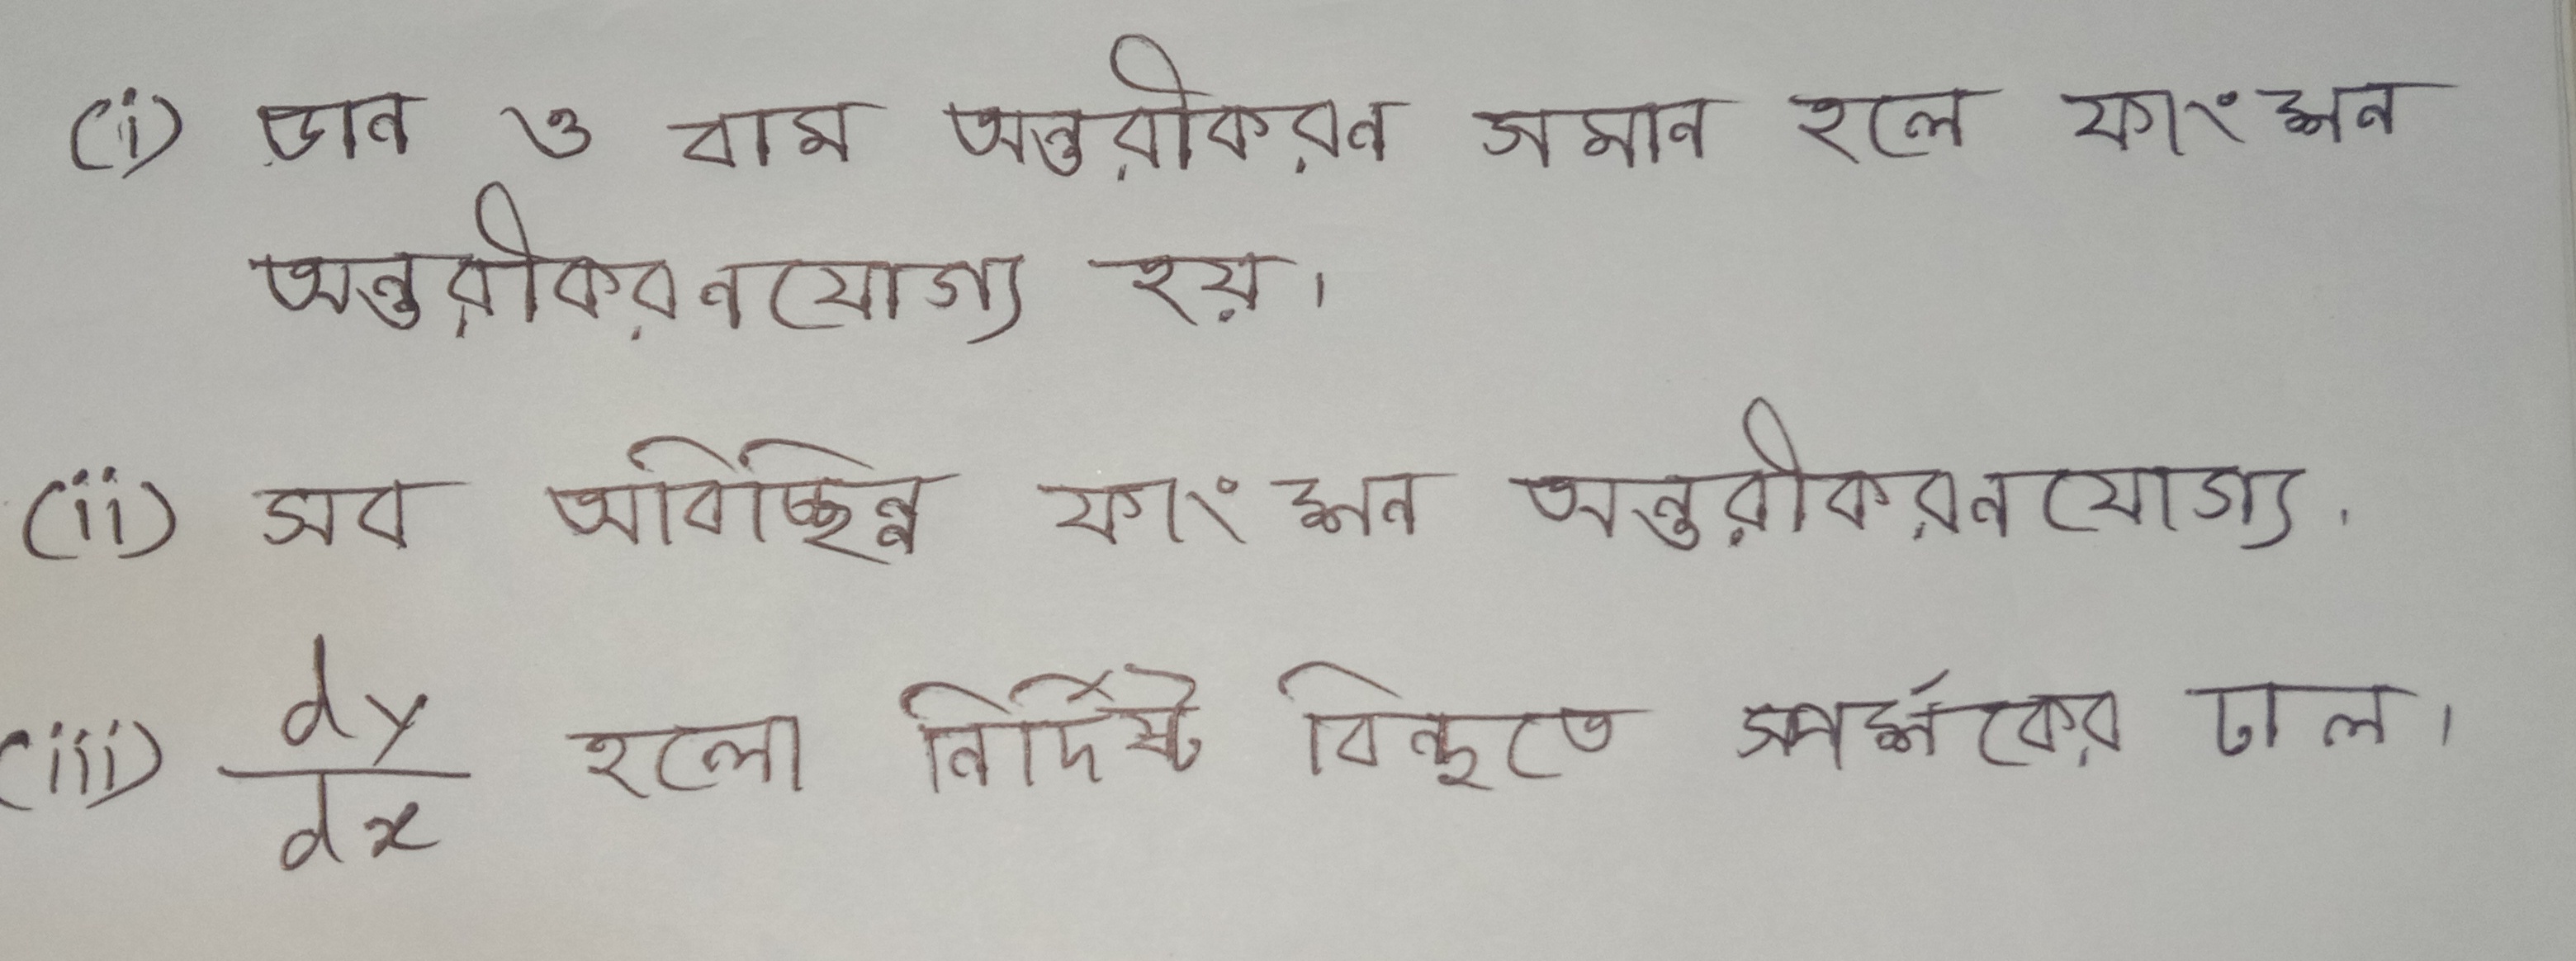 (i) ডান ও বাম অন্তরীকরন সমান হলে ফাংশন
অন্তরীকরনযোগ্য হয়।
(ii) সব অবিচ্ছিন্ন ফাংশন অন্তরীকরনযোগ্য.
(iii) dy/dx হলো নির্দিষ্ট বিন্দুতে স্পর্শকের ঢাল।